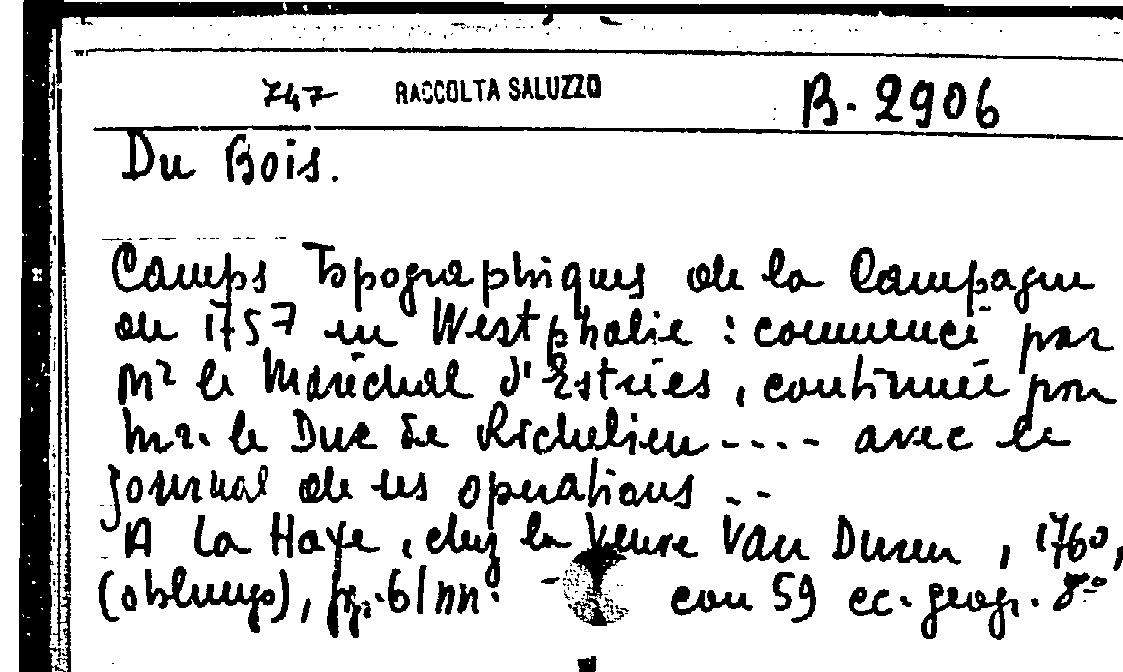 747 RACCOLTA SALUZZO B. 2906
Du Bois.
Camps Topographiques de la Campagne
de 1757 en Westphalie : commencé par
Mr le Maréchal d'Estrées, continuée par
Mr. le Duc de Richelieu ---- avec le
journal de ses operations --
A La Haye, chez la Veuve Van Duren, 1760,
(oblungo), pg. 6/nn. con 59 c. geogr. 8º